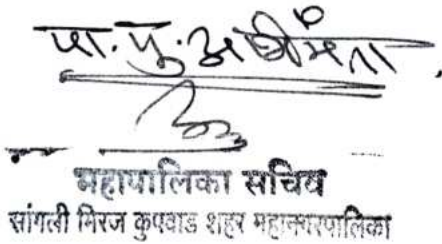 पा. पु. अभियंता
महापालिका सचिव
सांगली मिरज कुपवाड शहर महानगरपालिका